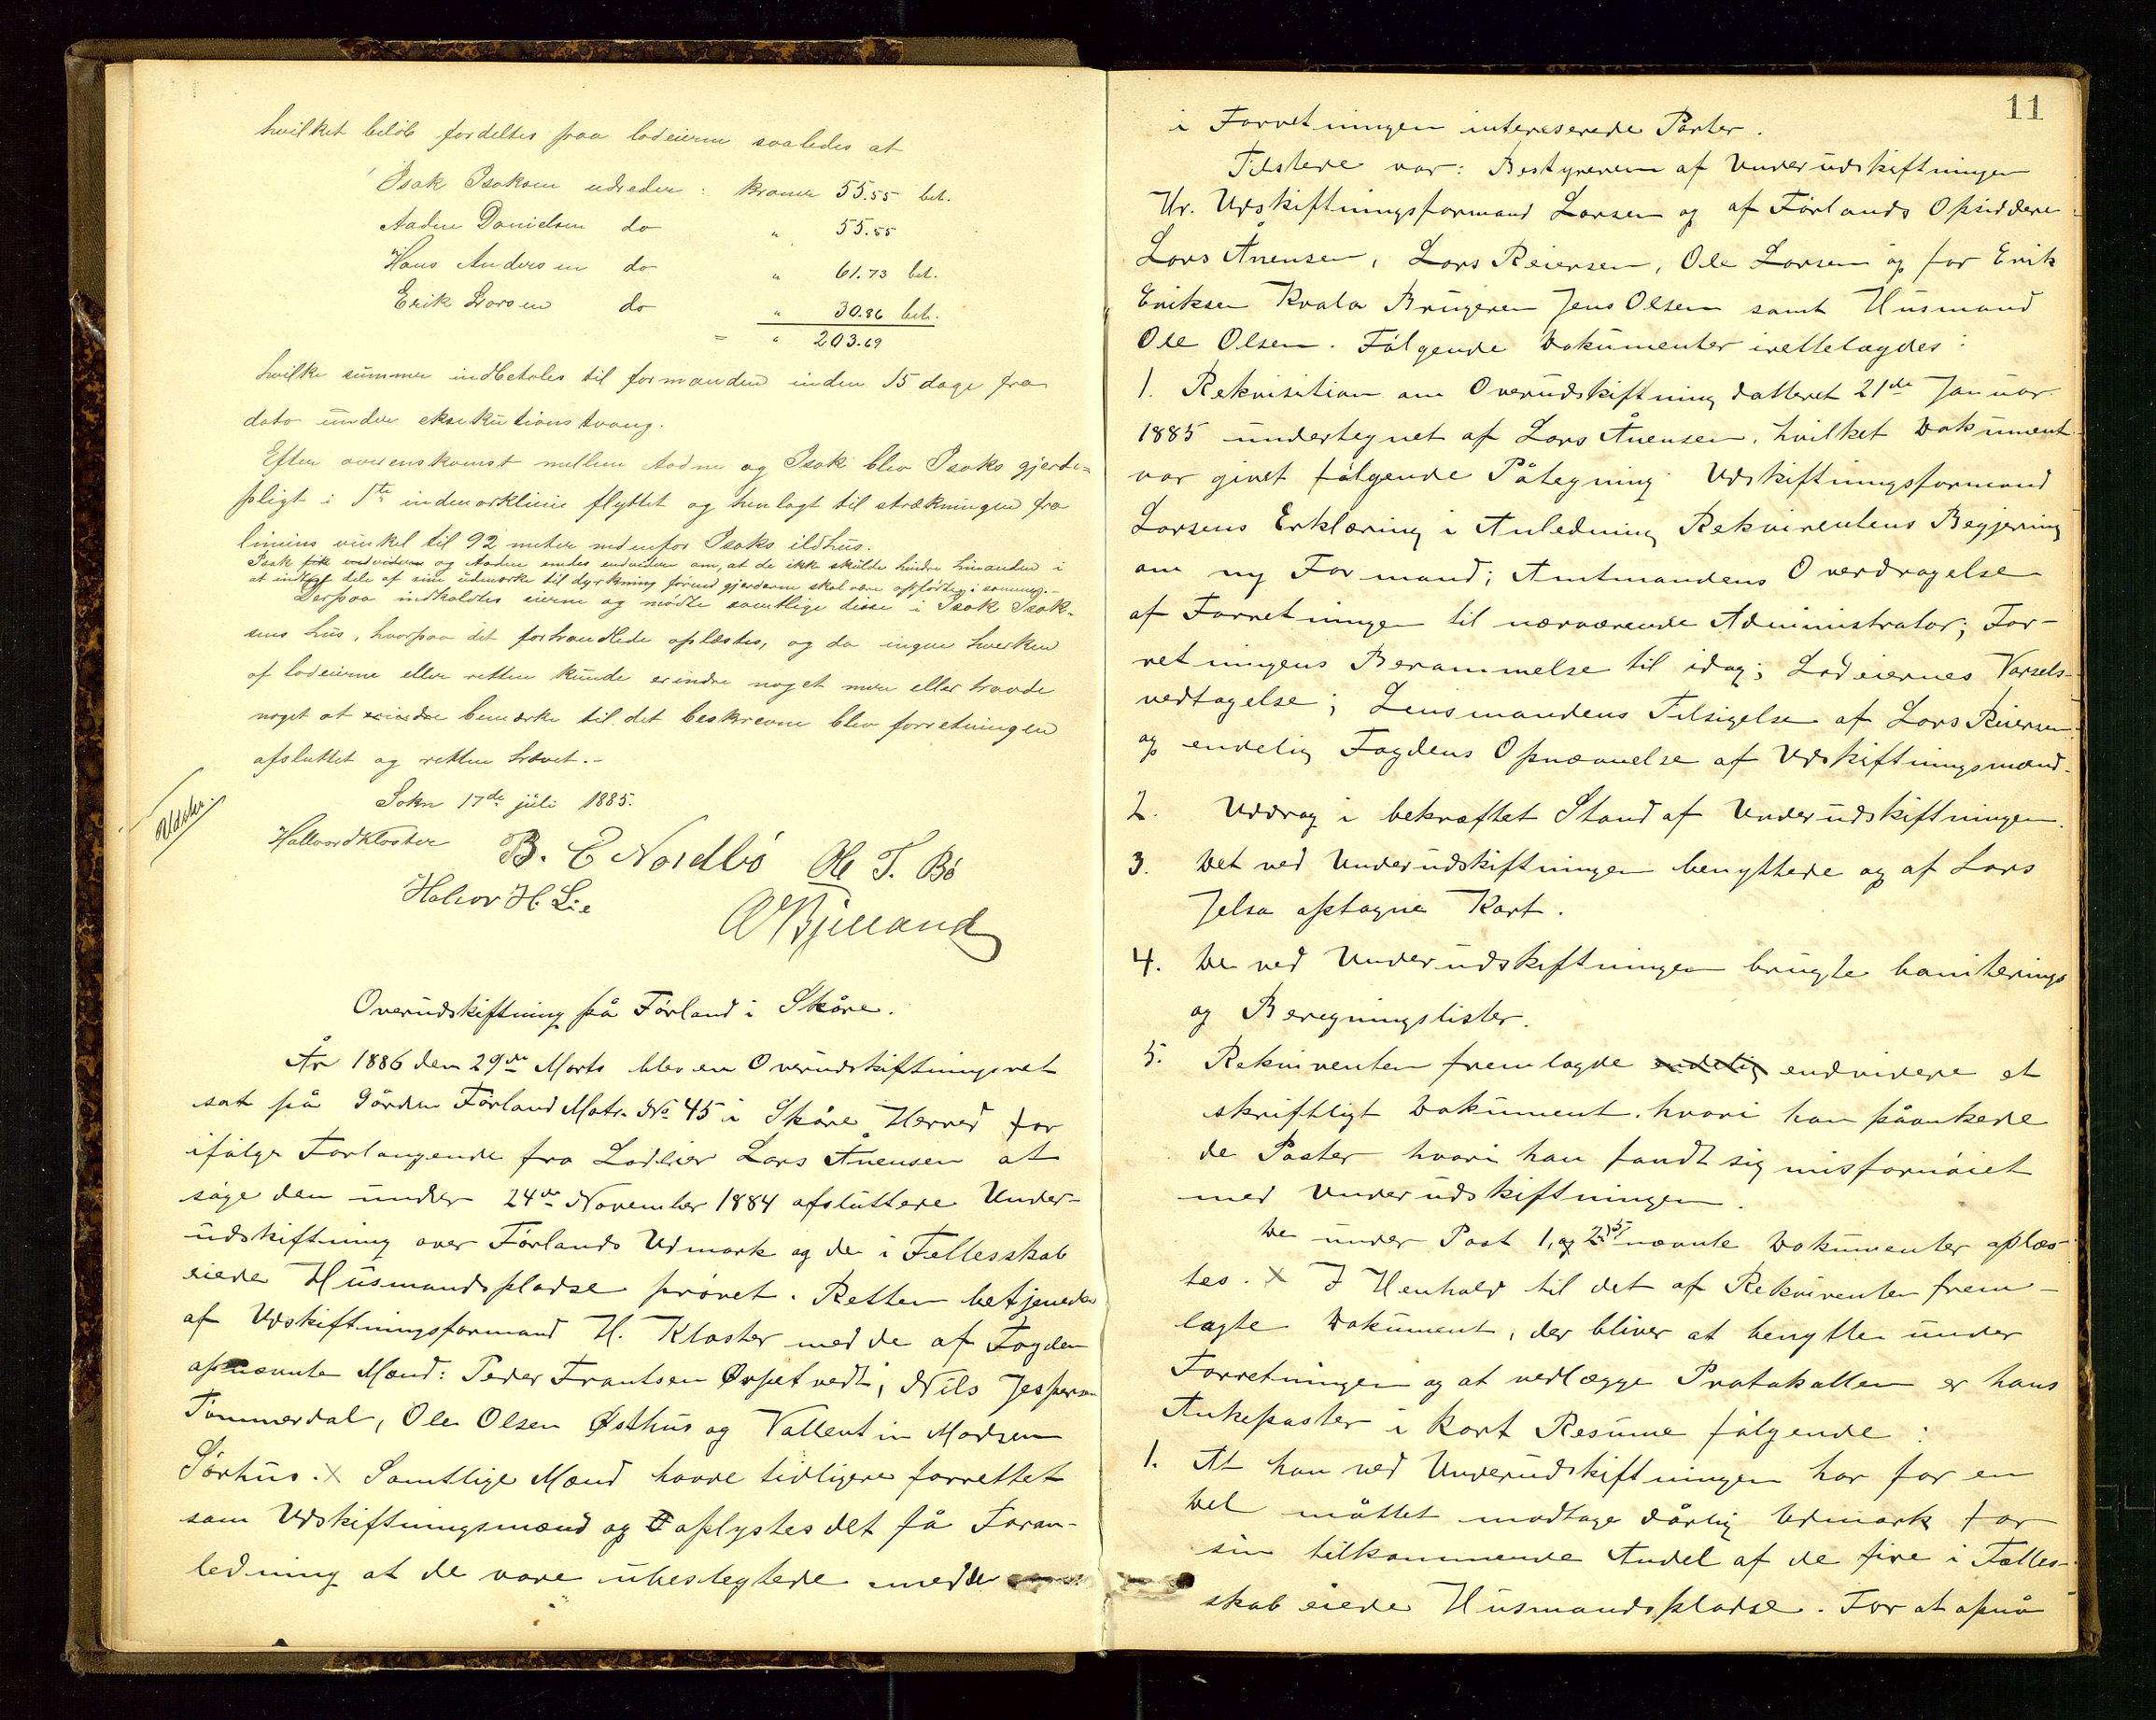 hvilket beløb fordeltes paa lodeierne saaledes at
Isak Isaksen udreder : kroner 55.55 bet.
Aadne Danielsen do " 55.55
Hans Andersen do " 61.73 bet.
Erik Larsen do " 30.86 bet.
= " 203.69
hvilke summer indbetales til formanden inden 15 dage fra
dato under eksekutionstvang.
Efter overenskomst mellem Aadne og Isak blev Isaks gjerde=
pligt i 1te indmarklinie flyttet og henlagt til strækningen fra
liniens vinkel til 92 meter nedenfor Isaks ildhus.
Isak fik endvidere og Aadne endes endvidere om, at de ikke skulde hindre hinanden i
at indtage dele af sine udmarke til dyrkning førend gjerderne skal være opførte i sommer.-
Derpaa indkaldtes eierne og mødte samtlige disse i Isak Isak-
sens hus, hvorpaa det forhandlede oplæstes, og da ingen hverken
af lodeierne eller retten kunde erindre noget mere eller havde
noget at erindre bemærke til det beskrevne blev forretningen
afsluttet og retten hævet.-
Sokn 17de juli 1885.
Udskr.
Hallvard Kloster B. C Nordbö Ole T. Bö
Halvor H. Lie
A Bjelland
Overudskiftning på Førland i Skåre.
År 1886 den 29de Marts blev en Overudskiftningsret
sat på Gården Førland Matr. No 45 i Skåre Herred for
ifølge Forlangende fra Lodeier Lars Ånensen at
søge den under 24de November 1884 afsluttede Under-
udskiftning over Førlands Udmark og de i Fellesskab
eiede Husmandspladse prøvet. Retten betjenedes
af Udskiftningsformand H. Kloster med de af Fogden
opnævnte Mænd: Peder Frantsen Ørpetvedt, Nils Jespersen
Tømmerdal, Ole Olsen Østhus og Vallentin Madsen
Sørhus. x Samtlige Mænd havde tidligere forrettet
som Udskiftningsmænd og oplystes det på Foran-
ledning at de vare ubeslegtede med de
11
i Forretningen interesserede Parter.
Tilstede var: Bestyreren af Underudskiftningen
Hr. Udskiftningsformand Larsen og af Førlands Opsiddere
Lars Ånensen, Lars Reiersen, Ole Larsen og for Erik
Eriksen Kvala Brugeren Jens Olsen samt Husmand
Ole Olsen. Følgende Dokumenter irettelagdes:
1. Rekvisition om Overudskiftning datteret 21de Januar
1885 undertegnet af Lars Ånensen, hvilket Dokument
var givet følgende Påtegning Udskiftningsformand
Larsens Erklæring i Anledning Rekvirentens Begjering
om ny Formand; Amtmandens Overdragelse
af Forretningen til nærværende Administrator; For-
retningens Berammelse til idag; Lodeiernes Varsels-
vedtagelse; Lensmandens Tilsigelse af Lars Reiersen
og endelig Fogdens Opnævnelse af Udskiftningsmænd.
2. Uddrag i bekræftet Stand af Underudskiftningen.
3. Det ved Underudskiftningen benyttede og af Lars
Jelsa optagne Kart.
4. De ved Underudskiftningen brugte boniterings
og Beregningslister.
5. Rekvirenten fremlagde endelig endvidere et
skriftligt Dokument, hvori han påankede
de Poster hvori han fandt sig misfornøiet
med Underudskiftningen.
De under Post 1, og 2, 5 nævnte Dokumenter oplæs-
tes. x I Henhold til det af Rekvirenten frem-
lagte Dokument, der bliver at benytte under
Forretningen og at vedlægge Protokollen er hans
Ankeposter i kort Resume følgende:
1. At han ved Underudskiftningen har for en
Del måttet modtage dårlig Udmark for
sin tilkommende Andel af de fire i Fælles-
skab eiede Husmandspladse. For at opnå